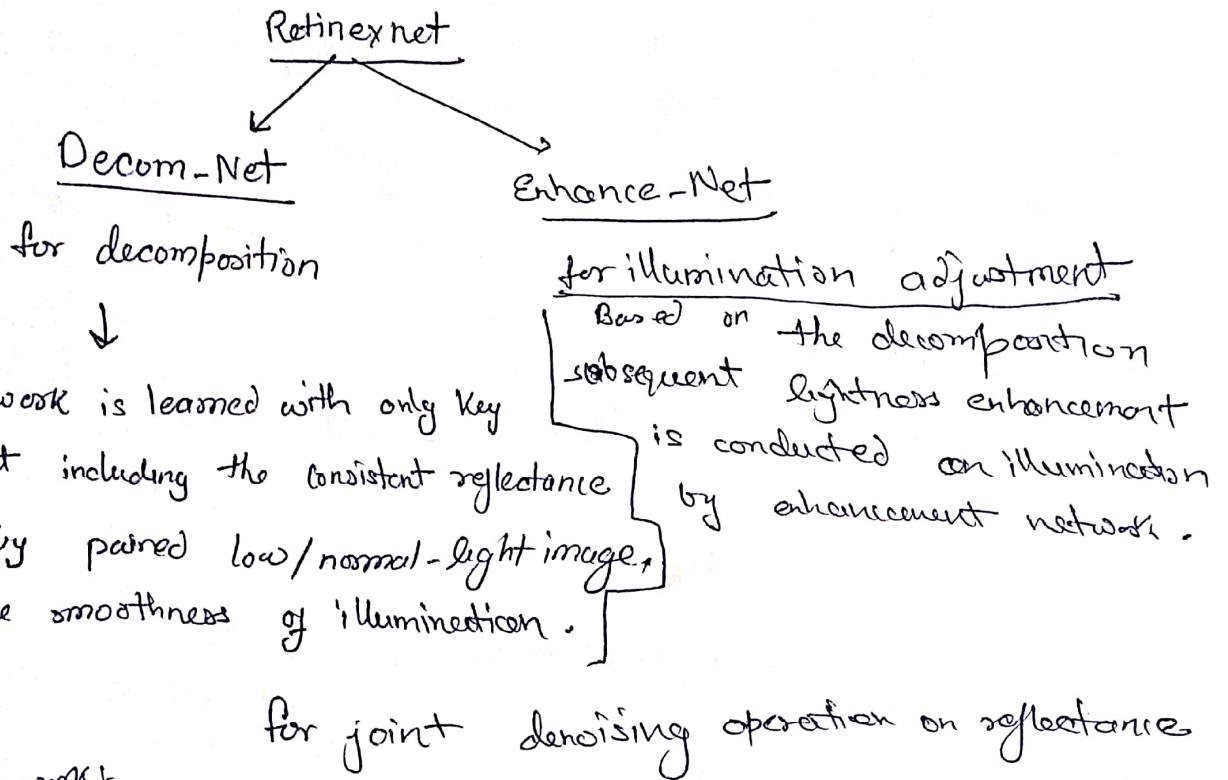 Retinexnet
Decom-Net
for decomposition
work is learned with only key
t including the consistent reflectance
by paired low/normal-light image,
e smoothness of illumination.
Enhance-Net
for illumination adjustment
Based on the decomposition
subsequent lightness enhancement
is conducted on illumination
by enhancement network.
for joint denoising operation on reflectance